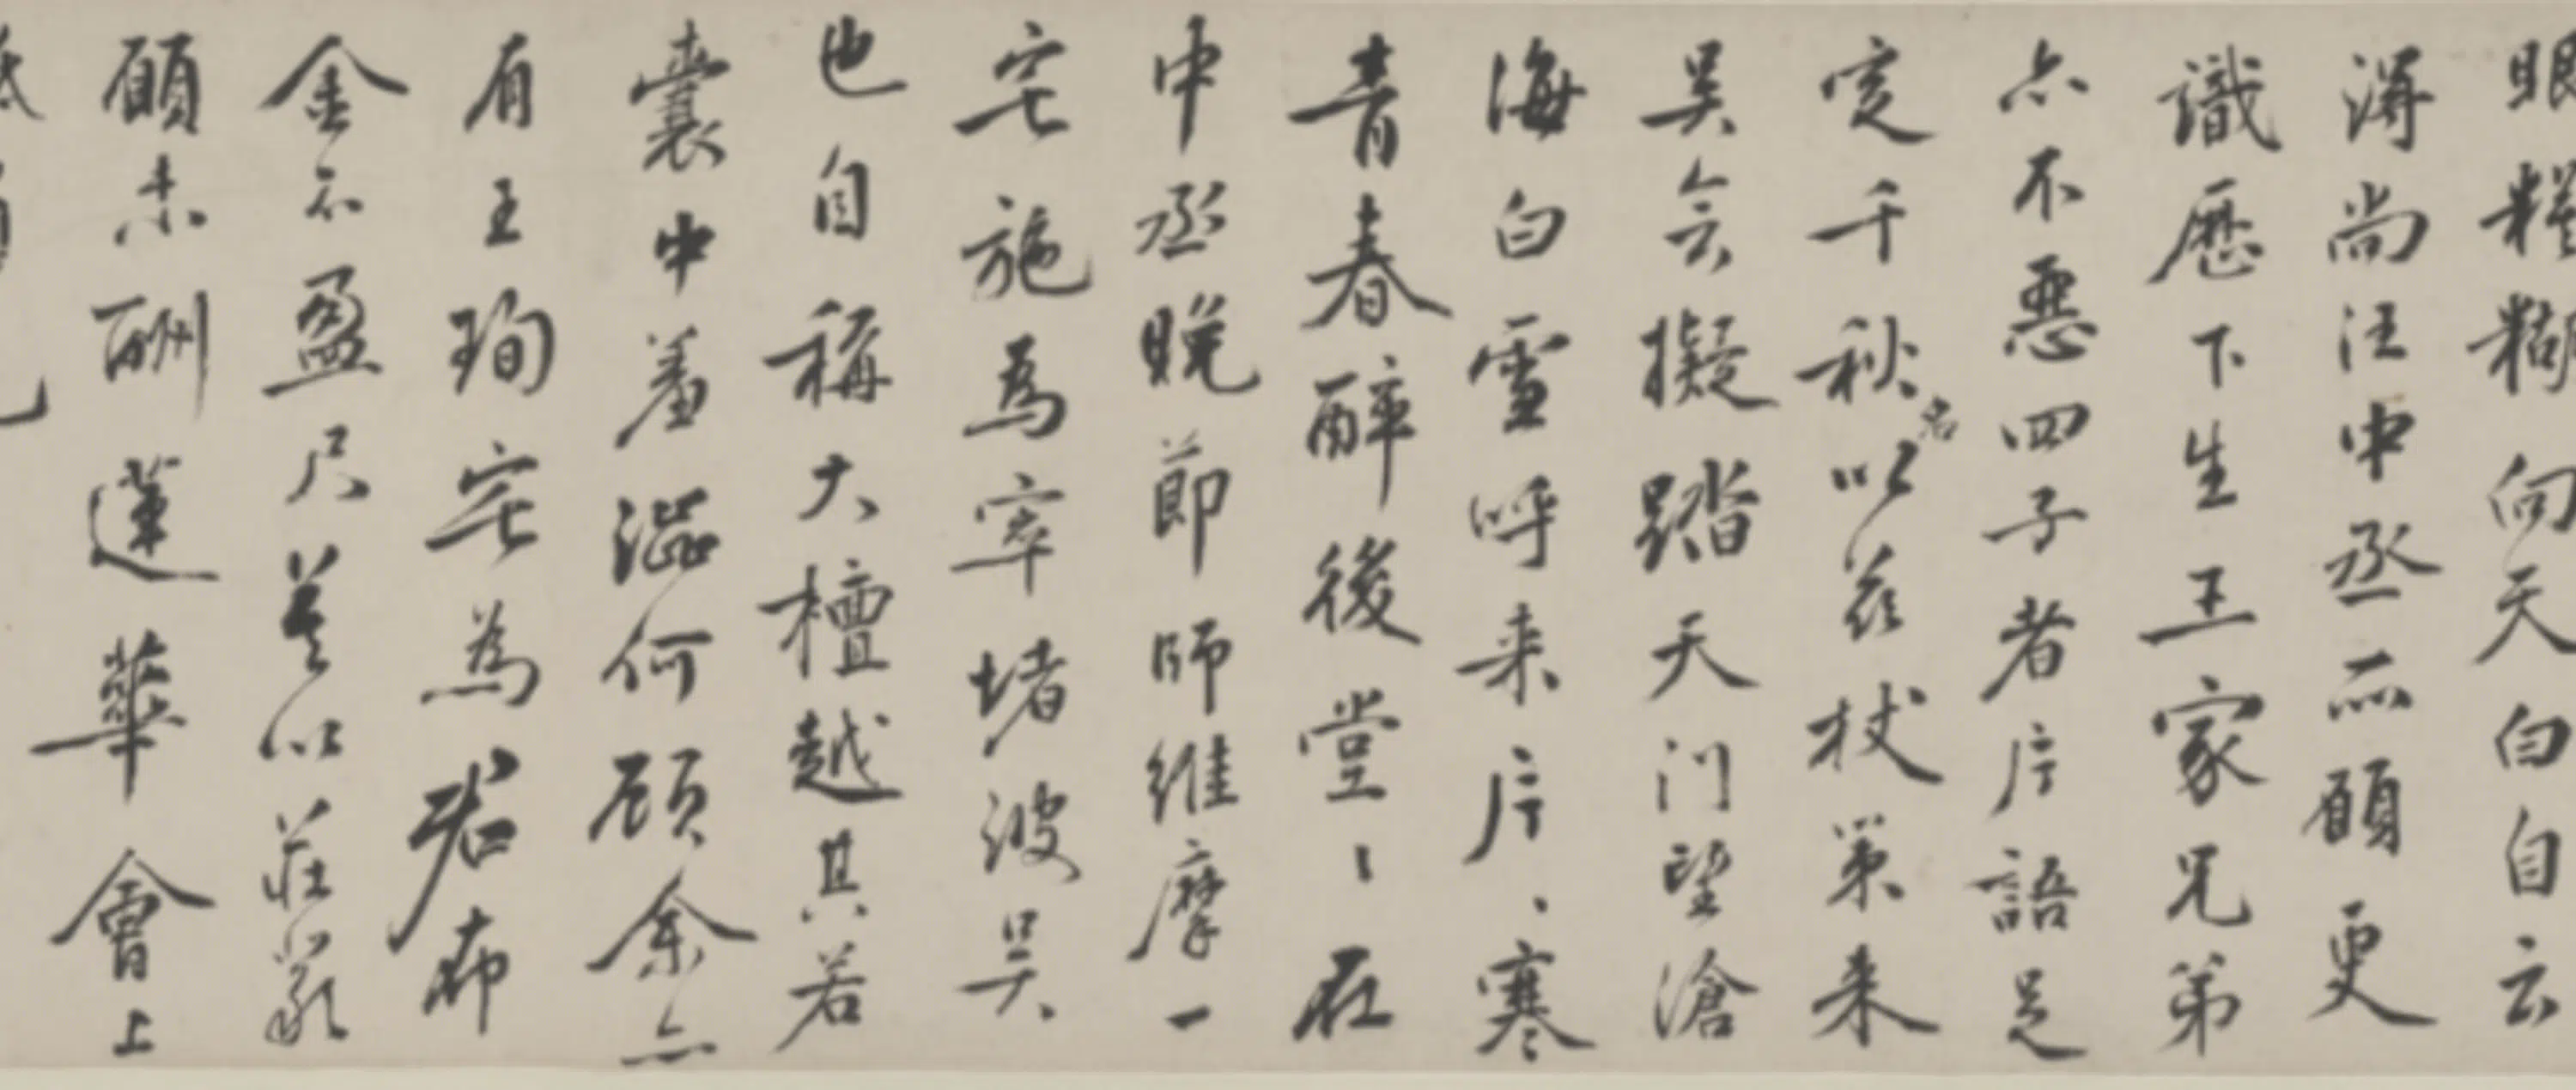 眼糢糊向天白自云
得尚汪中丞而願更
識歷下生王家兄弟
亦不惡四子者片語足
定千秋名以茲杖策来
吴会擬踏天门望滄
海白雪呼来片、寒
青春醉後堂、在
中丞晚節師維摩一
宅施為窣堵波吴
也自稱大檀越其若
囊中羞澁何顾余亦
有王珣宅為君布
金不盈尺以莊嚴
願未酬蓮華會上